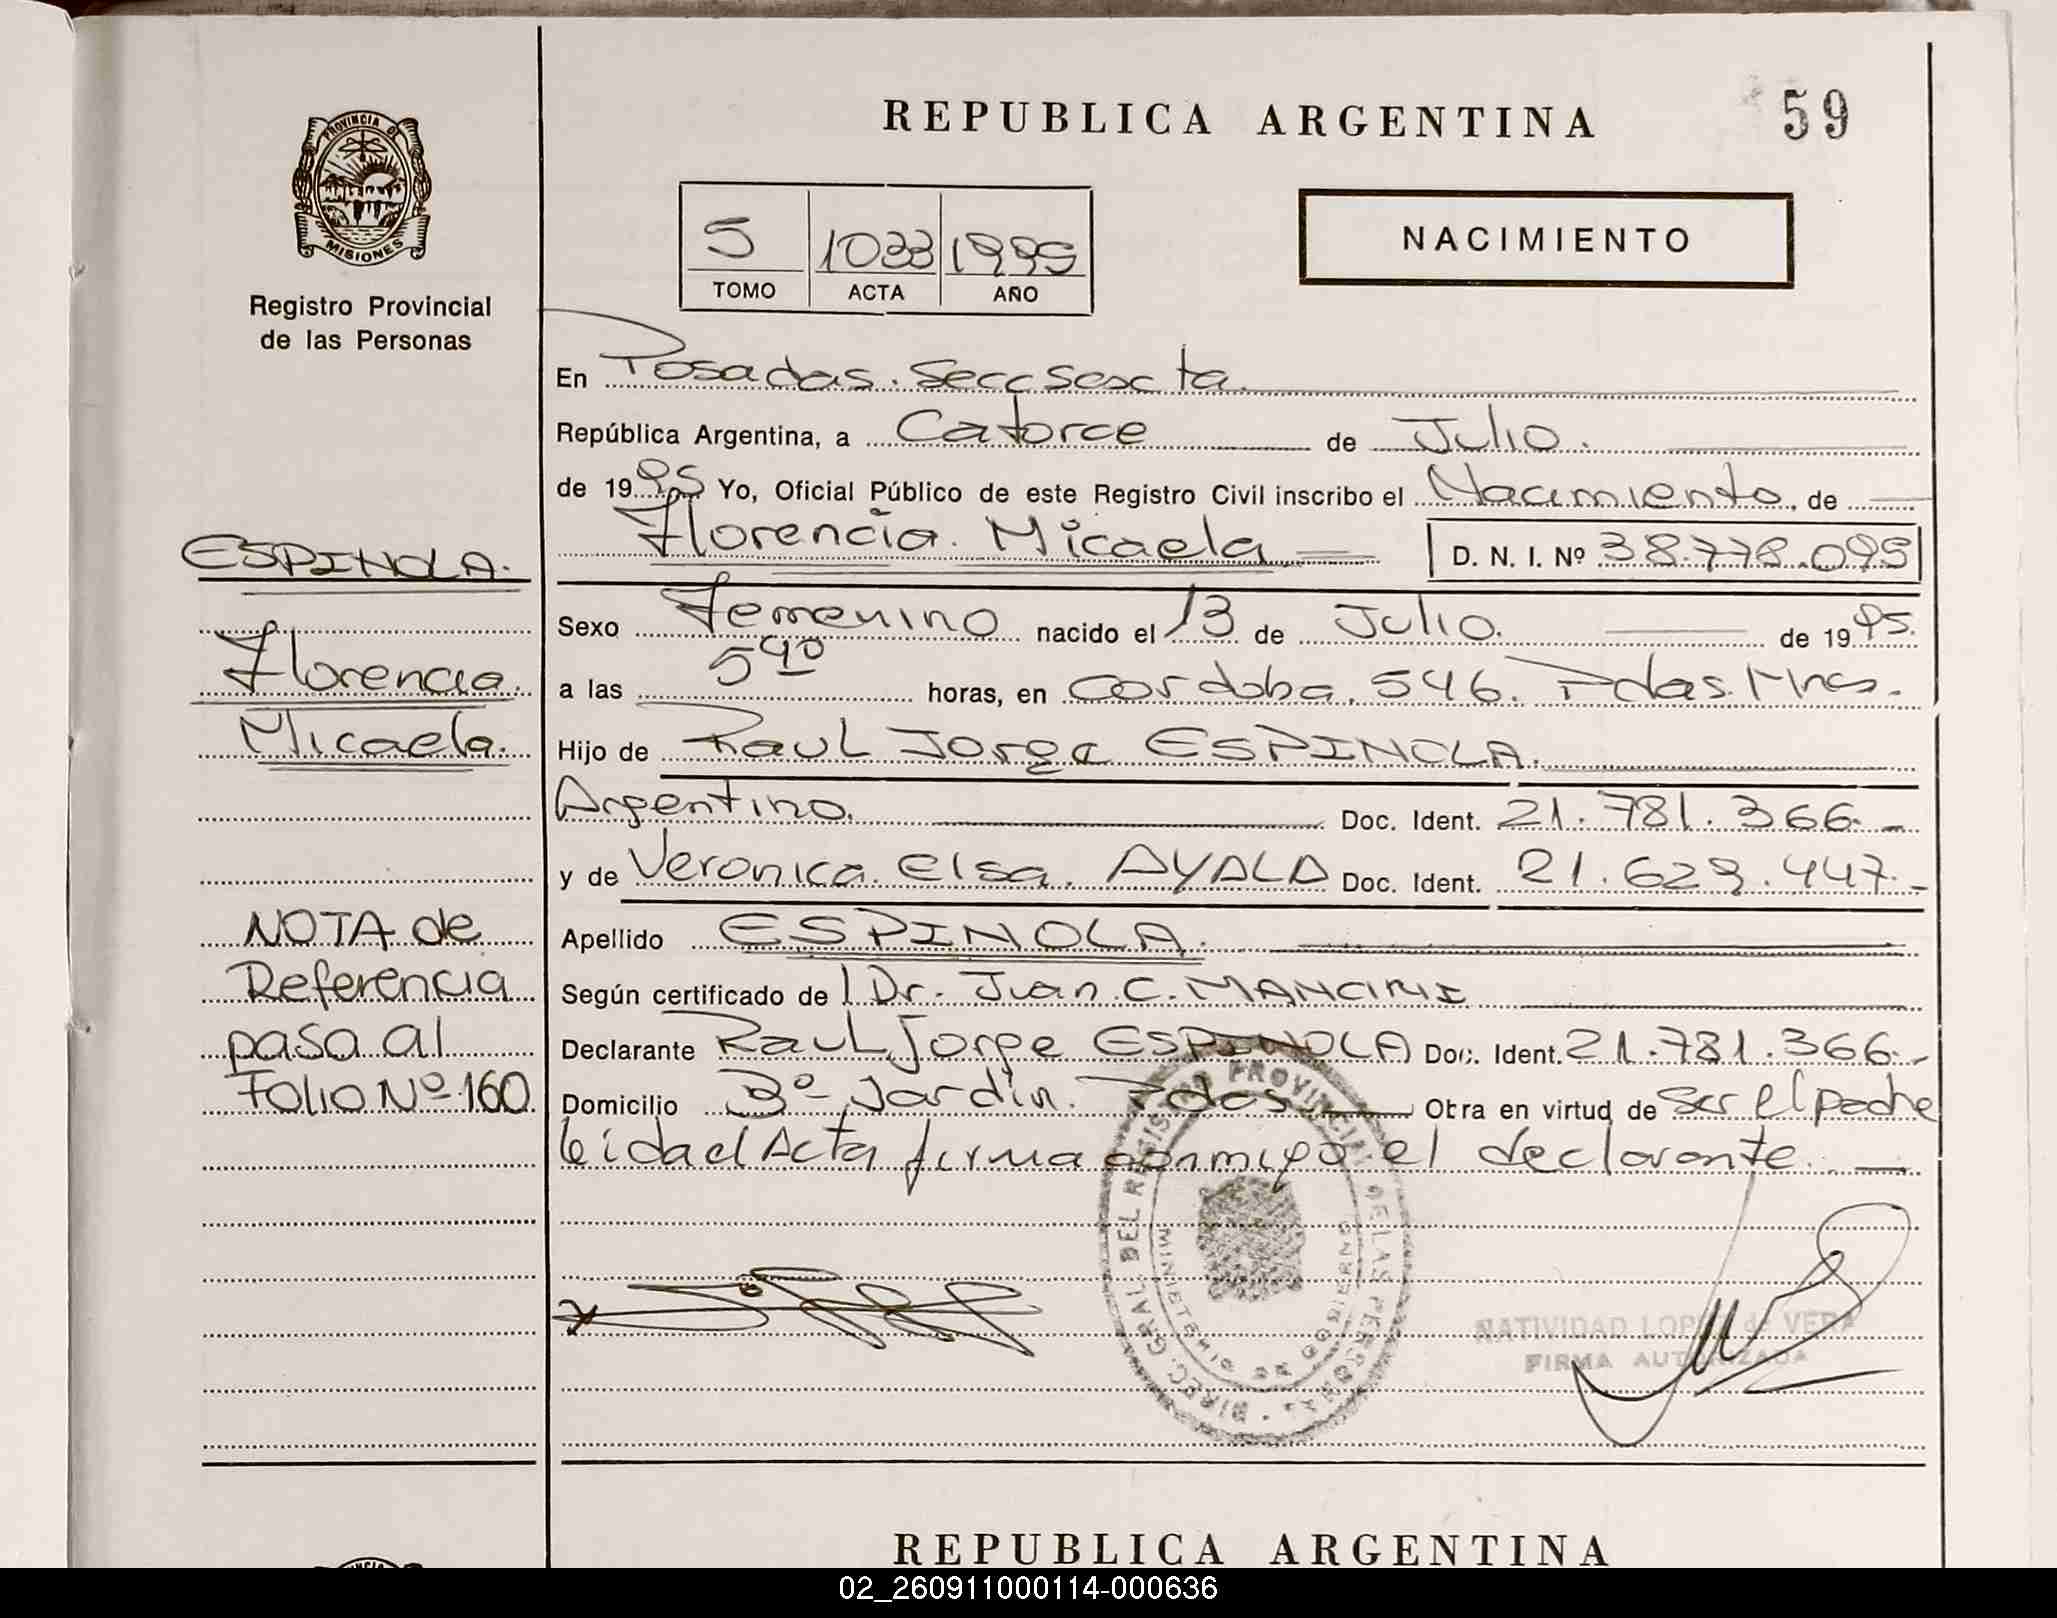 PROVINCIA DE
MISIONES
Registro Provincial
de las Personas
REPUBLICA ARGENTINA
59
5 1033 1995
TOMO ACTA AÑO
NACIMIENTO
En Posadas. Secc Sexta
República Argentina, a Catorce de Julio.
de 1995 Yo, Oficial Público de este Registro Civil inscribo el Nacimiento, de
Florencia Micaela D. N. I. Nº 38.778.095
Sexo Femenino nacido el 13 de Julio. de 1995.
a las 5 40 horas, en Cordoba. 546. Pdas. Mnes.
Hijo de Raul Jorge ESPINOLA.
Argentino. Doc. Ident. 21.781.366.-
y de Veronica Elsa. AYALA Doc. Ident. 21.629.447.-
Apellido ESPINOLA.
Según certificado de Dr. Juan C.
Declarante Raul Jorge ESPINOLA Doc. Ident. 21.781.366.-
Domicilio Bº Jardin. Pdas. Obra en virtud de ser el padre
leida el Acta firma conmigo el declarante.
ESPINOLA.
Florencia
Micaela.
NOTA de
Referencia
pasa al
FOLIO Nº 160
DIREC. GRAL. DEL REGISTRO PROVINCIAL DE LAS PERSONAS
MINISTERIO DE GOBIERNO
NATIVIDAD LOPEZ de VERA
FIRMA AUTORIZADA
REPUBLICA ARGENTINA
02_260911000114-000636